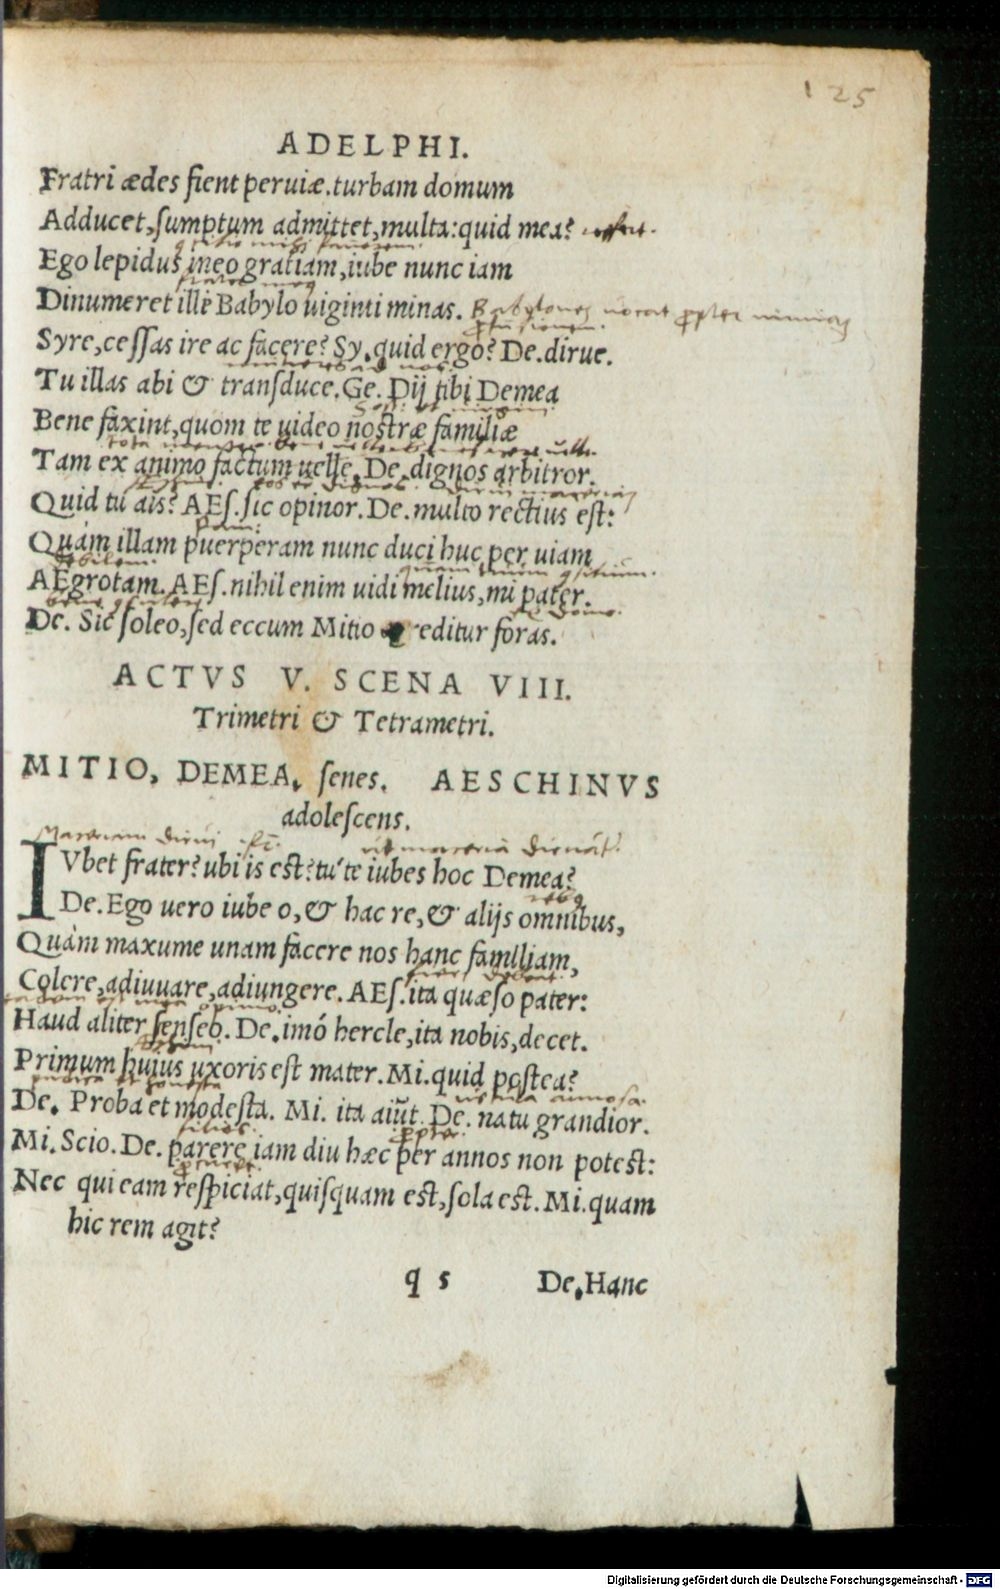 125
ADELPHI.
Fratri ædes fient peruiæ.turbam domum
Adducet,sumptum admittet,multa:quid mea? refert.
Ego lepidus ineo gratiam,iube nunc iam
frater meus
Dinumeret ille Babylo uiginti minas. Babylonem uocat propter nimiam
profusionem.
Syre,cessas ire ac facere? Sy.quid ergo? De.dirue.
Tu illas abi & transduce.Ge. Dij tibi Demea
Bene faxint,quom te uideo nostræ familiæ
Tam ex animo factum uelle. De.dignos arbitror.
Quid tu ais? AEs.sic opinor.De.multo rectius est:
Quàm illam puerperam nunc duci huc per uiam
debilem.
AEgrotam.AEs.nihil enim uidi melius,mi pater.
De. Sic soleo,sed eccum Mitio egreditur foras.
ACTVS V. SCENA VIII.
Trimetri & Tetrametri.
MITIO, DEMEA, senes. AESCHINVS
adolescens.
Maceriam dirui
IVbet frater?ubi is est?tú te iubes hoc Demea?
De.Ego uero iubeo,& hac re,& alijs omnibus,
Quàm maxume unam facere nos hanc familiam,
Colere,adiuuare,adiungere.AEs.ita quæso pater:
Haud aliter senseo.De.imó hercle,ita nobis,decet.
Primum huius uxoris est mater.Mi.quid postea?
De. Proba et modesta. Mi. ita aiũt. De. natu grandior.
filios. propter.
Mi.Scio.De.parere iam diu hæc per annos non potest:
Nec qui eam respiciat,quisquam est,sola est.Mi.quam
hic rem agit?
q 5 De.Hanc
Digitalisierung gefördert durch die Deutsche Forschungsgemeinschaft - DFG